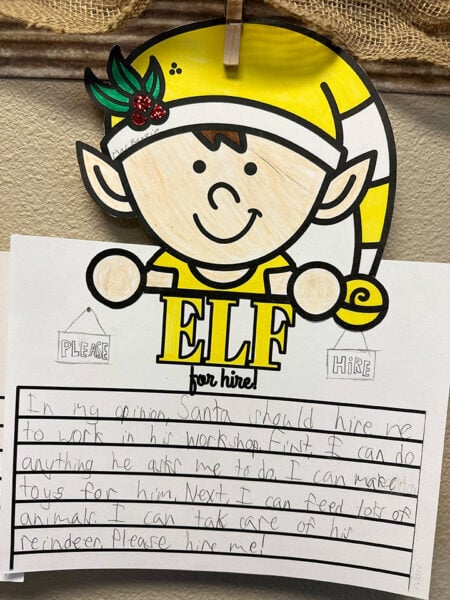 PLEASE
ELF
HIRE
for hire!
In my opinion, Santa should hire me
to work in his workshop. First, I can do
anything he asks me to do. I can make
toys for him. Next, I can feed lots of
animals. I can take care of his
reindeer. Please hire me!